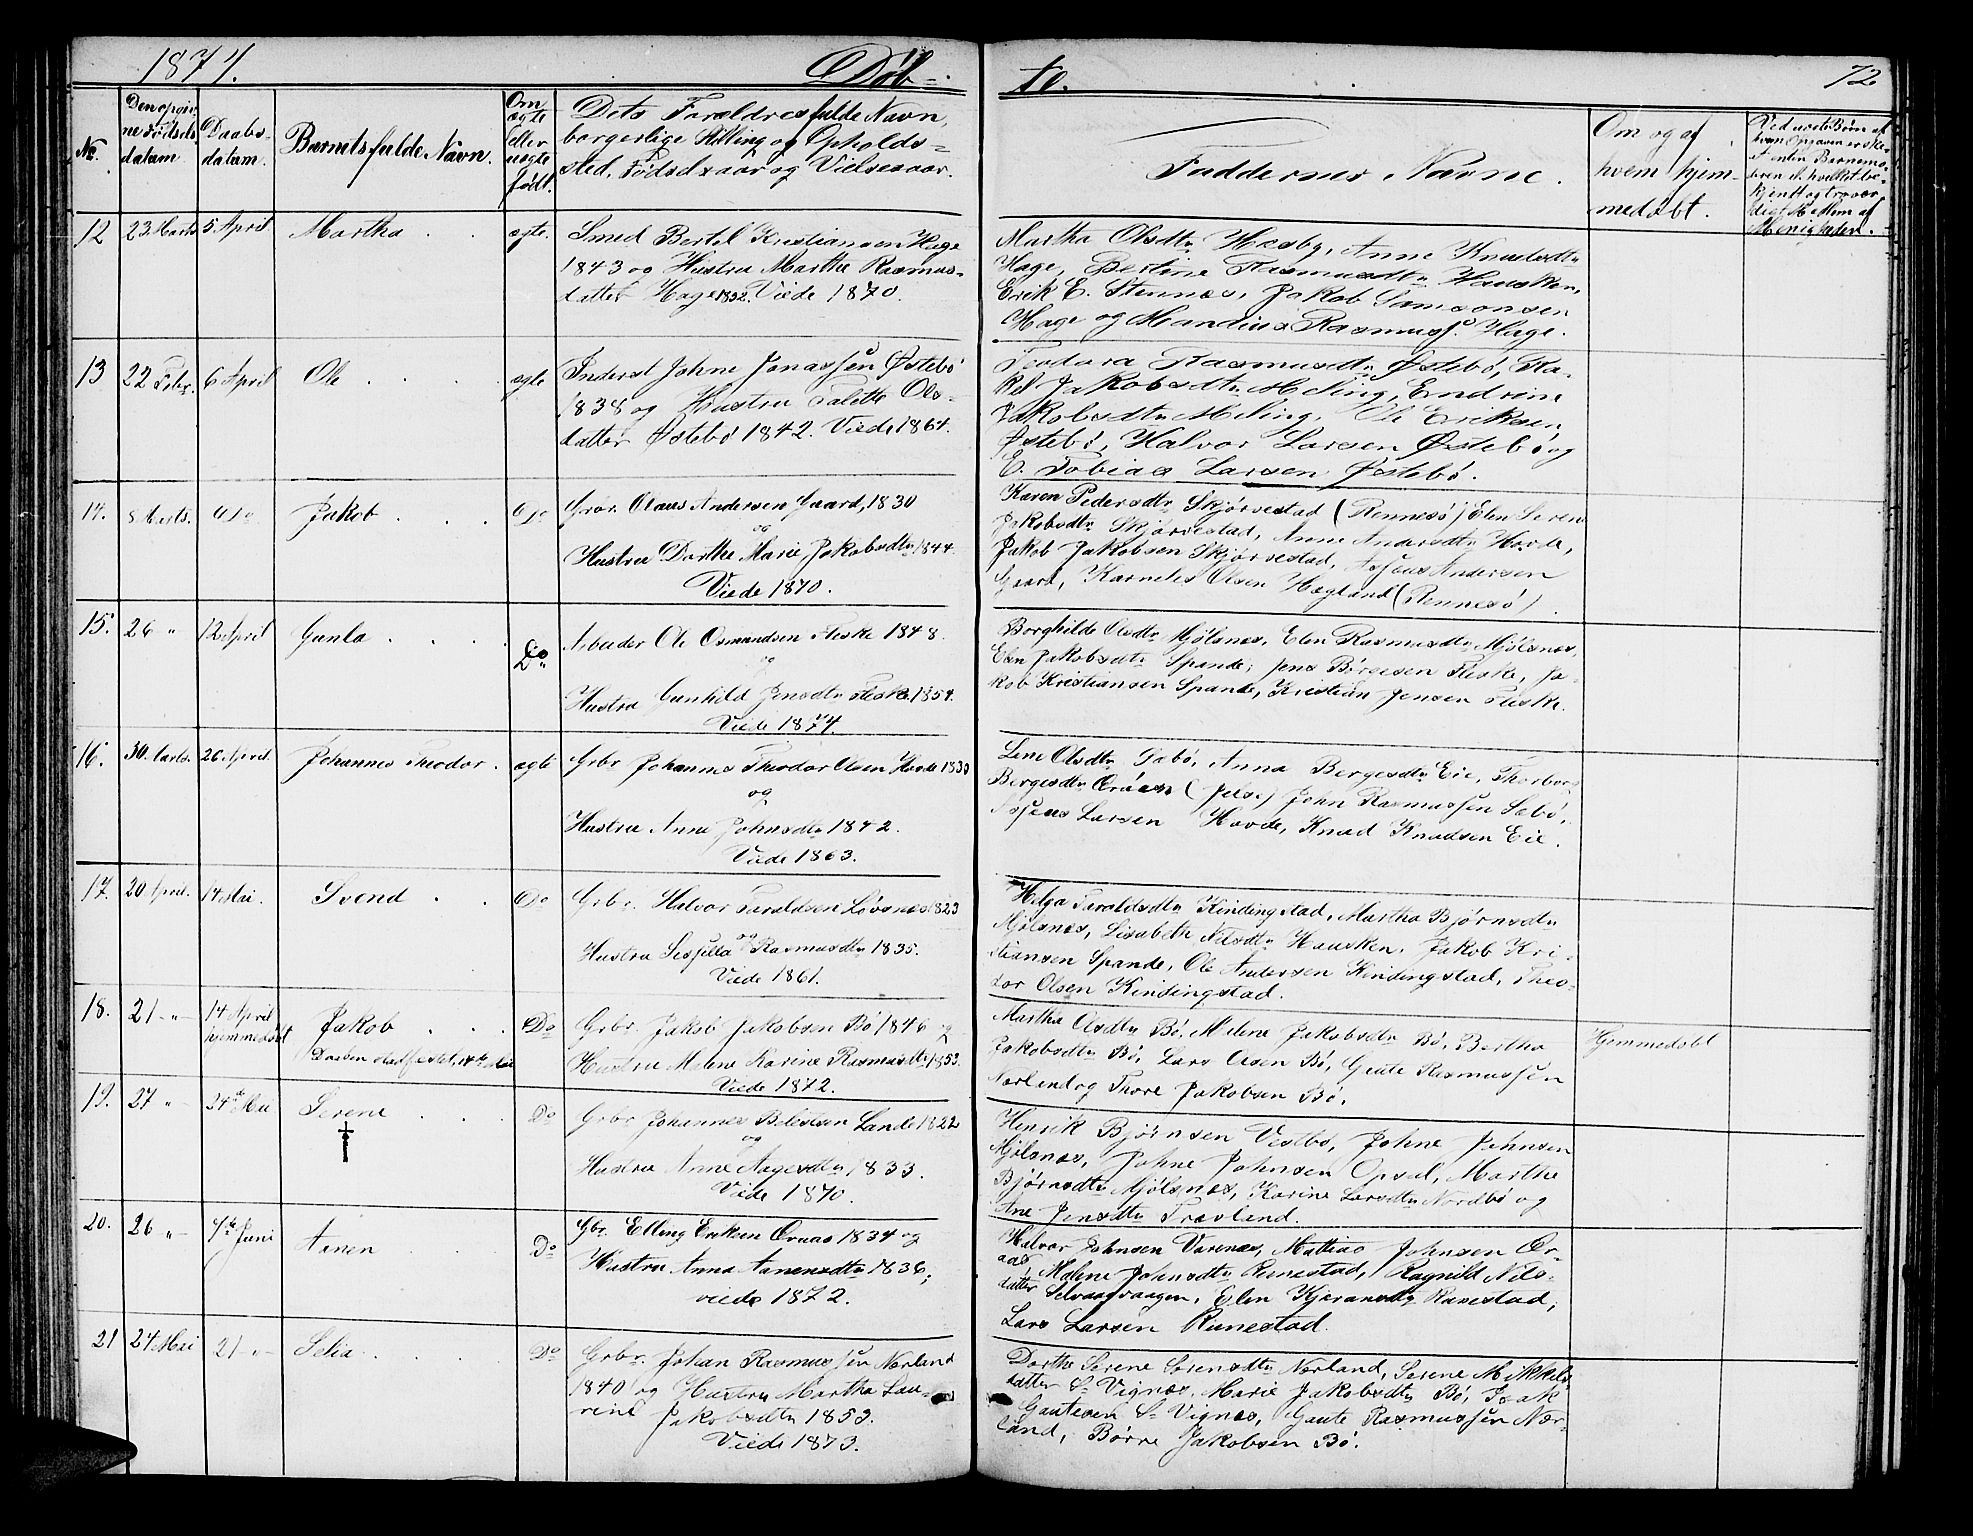 1874.
Døb-
te.
72
No.
Den opgiv
ne Fødsels
datum
Daabs-
datum.
Barnets fulde Navn.
Om
ægte
eller
uægte
født.
Dets Forældres fulde Navn,
borgerlige Stilling og Opholds-
sted, Fødselsaar og Vielsesaar.
Faddernes Navne.
Om og af
hvem hjem-
medøbt.
Ved uægte Børn af
Menigheden.
12
23 Marts
5 April
Martha
ægte.
Smed Bertel Kristiansen Hage
1843 og Hustru Marthe Rasmus-
datter Hage 1832. Viede 1870.
Martha Olsdtr Hæsby, Anne Knudsdtr
Hage, Bertine Rasmusdtr Hausken,
Erik E. Stennes, Jakob Samsonsen
Hage og Mandius Rasmuss. Hage.
13
22 Febr.
6 April
Ole
ægte
Inderst Johne Jonassen Østebø
1838 og Hustru Talette Ols-
datter Østebø 1842. Viede 1864.
Teodora Rasmusdtr Østebø, Ra-
kel Jakobsdtr Meling, Endrine
Jakobsdtr Meling, Ole Eriksen
Østebø, Halvor Larsen Østebø og
E. Tobias Larsen Østebø.
14.
8 Marts.
Do
Jakob
Do
Grbr. Olaus Andersen Gaard, 1830
og
Hustru Dorthe Marie Jakobsdtr 1844.
Viede 1870.
Karen Pedersdtr Skjørvestad (Rennesø) Elen Seren
Jakobsdtr Skjørvestad, Anne Andersdtr Hovde,
Jakob Jakobsen Skjørvestad, Assens Andersen
Gaard, Kornelis Olsen Hegland (Rennesø).
15.
26 "
12 April
Gunla
Do
Arbeider Ole Osmundsen Fleske 1848.
og
Hustru Gunhild Jensdtr Fleske 1854.
Viede 1874.
Borghilde Olsdtr Mjølsnes, Elen Rasmusdtr Mjølsnes,
Elen Jakobsdtr Spande, Jens Børgesen Fleske, Ja-
kob Kristiansen Spande, Kristian Jensen Fleske.
16.
30 Marts.
26 April.
Johannes Theodor.
ægte
Grbr Johannes Theodor Olsen Hovde 1830
og
Hustru Anne Johnsdtr 1842.
Viede 1863.
Lene Olsdtr Søbø, Anna Bergesdtr Eie, Thorbor
Bergesdtr (Jelse) John Rasmussen Søbø,
Assens Larsen Hovde, Knud Knudsen Eie.
17.
20 April.
14 Mai.
Svend
Do
Grbr. Halvor Taraldsen Løvsnes 1823
og
Hustru Sissilla Rasmusdtr 1835.
Viede 1861.
Helga Taraldsdtr Kindingstad, Martha Bjørnsdtr
Mjølsnes, Lisabeth Nilsdtr Hausken, Jakob Kri-
stiansen Spande, Ole Andersen Kindingstad, Theo-
dor Olsen Kindingstad.
18.
21 - " -
14 April
hjemmedøbt
Jakob
Daaben stadfæstet, 14de Mai
Do
Grbr. Jakob Jakobsen Bø 1846 og
Hustru Malene Karine Rasmusdtr 1853.
Viede 1872.
Martha Olsdtr Bø, Malene Jakobsdtr Bø, Bertha
Jakobsdtr Bø, Lars Olsen Bø, Gaute Rasmussen
Nørland og Thore Jakobsen Bø.
Hjemmedøbt
19.
27 "
24de Mai
Serene
Do
Grbr Johannes Belestsen Lande 1822
og
Hustru Anne Aagesdtr 1833.
Viede 1870.
Henrik Bjørnsen Vestbø, Johne Johnsen
Mjølsnes, Johne Johnsen Opsal, Marthe
Bjørnsdtr Mjølsnes, Karine Larsdtr Nordbø og
Ane Jensdtr Træsland.
20.
26 "
7de Juni
Anen
Do
Gbr. Elling Eriksen Ørnas 1834 og
Hustru Anna Aanensdtr 1836;
viede 1872.
Halvor Johnsen Varenes, Mathias Johnsen Ør-
aas, Malene Johnsdtr Runestad, Ragnild Nils-
datter Selvaagvaagen, Elen Kjeransdtr Runestad,
Lars Larsen Runestad.
21
24 Mai
21 - " -
Selia
Do
Grbr. Johan Rasmussen Nørland
1840 og Hustru Martha Lau-
rene Jakobsdtr 1853.
Viede 1873.
Dorthe Serene Sørensdtr Nørland, Serene Mikkels
datter S. Vignes, Marie Jakobsdtr Bø, Isak
Gautesen S. Vignes, Gaute Rasmussen Nør-
land, Børre Jakobsen Bø.